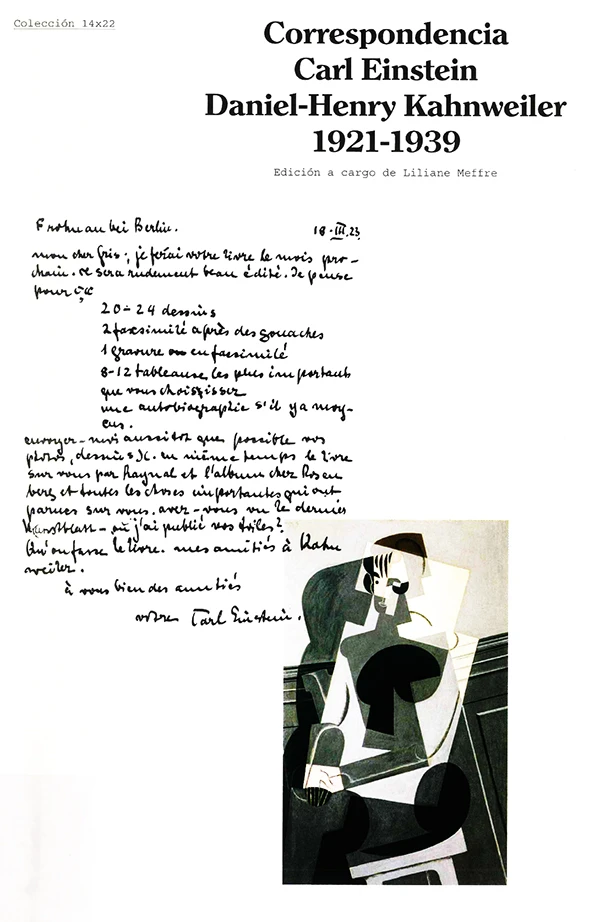 Colección 14x22
Correspondencia
Carl Einstein
Daniel-Henry Kahnweiler
1921-1939
Edición a cargo de Liliane Meffre
Frohnau bei Berlin. 18.III.23
mon cher Gris; je ferai votre livre le mois pro-
chain. ce sera rudement beau édité. Je pense
pour
20-24 dessins
2 facsimilé après des gouaches
1 gravure ou en facsimilé
8-12 tableaux, les plus importants
que vous choisissez
une autobiographie s'il y a moy-
en.
envoyer-moi aussitot que possible vos
photos, dessins etc. en même temps le livre
sur vous par Raynal et l'album chez Rosen
berg et toutes les choses importantes qui ont
parues sur vous. avez-vous vu le dernier
Kunstblatt - où j'ai publié vos toiles?
Qu'on fasse le livre. mes amitiés à Kahn
weiler.
à vous bien des amitiés
votre Carl Einstein.